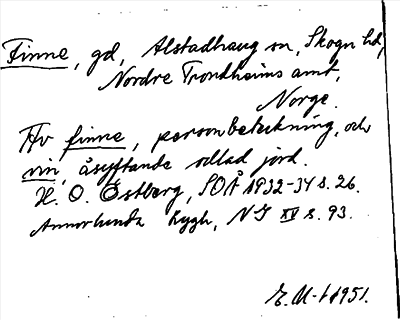 Finne, gd, Alstadhaug sn, Skogn hd,
Nordre Trondheims amt,
Norge.
Av finne, personbeteckning, och
vin, åsyftande odlad jord.
H. O. Östberg, SOÅ 1932-34 s. 26.
Annorlunda Rygh, NG XV s. 93.
1951.